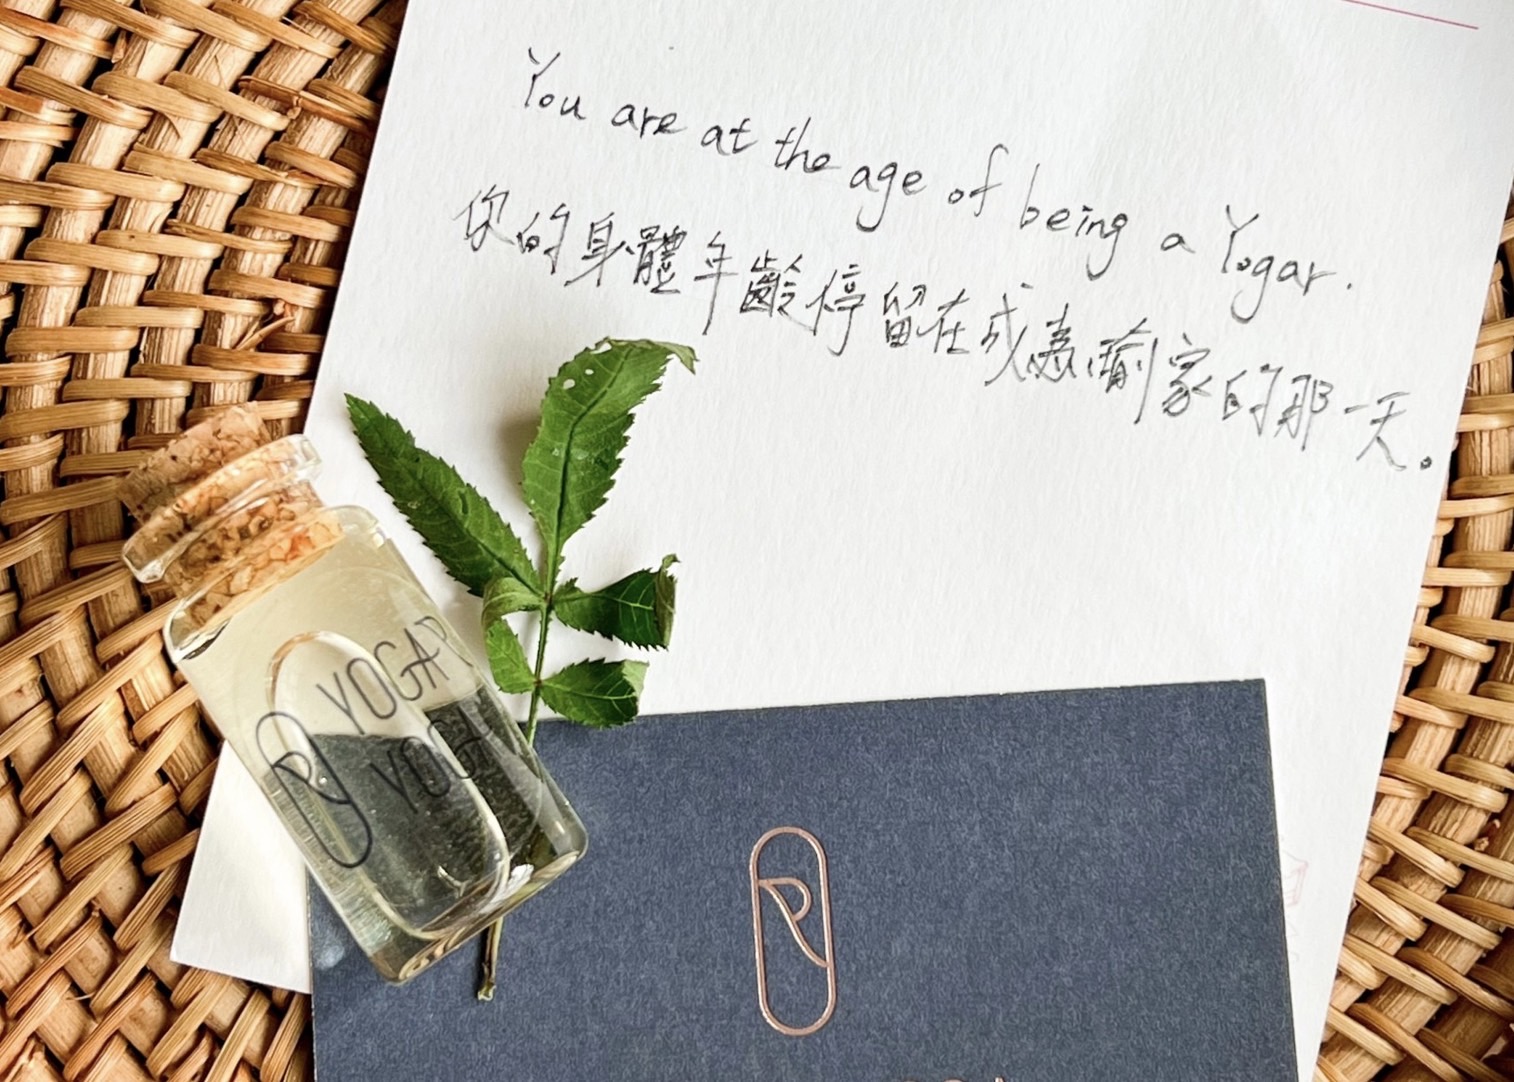 You are at the age of being a Yogar.
你的身體年齡停留在成為瑜家的那一天。
YOGAR
YOGA